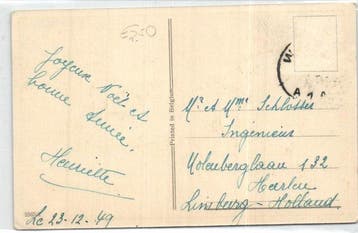 Joyeux Noël et
bonne année.
Henriette
Le 23-12-49
Printed in Belgium
Mr et Mme Schlösser
Ingénieur
Molenberglaan 132
Heerlen
Limburg - Holland